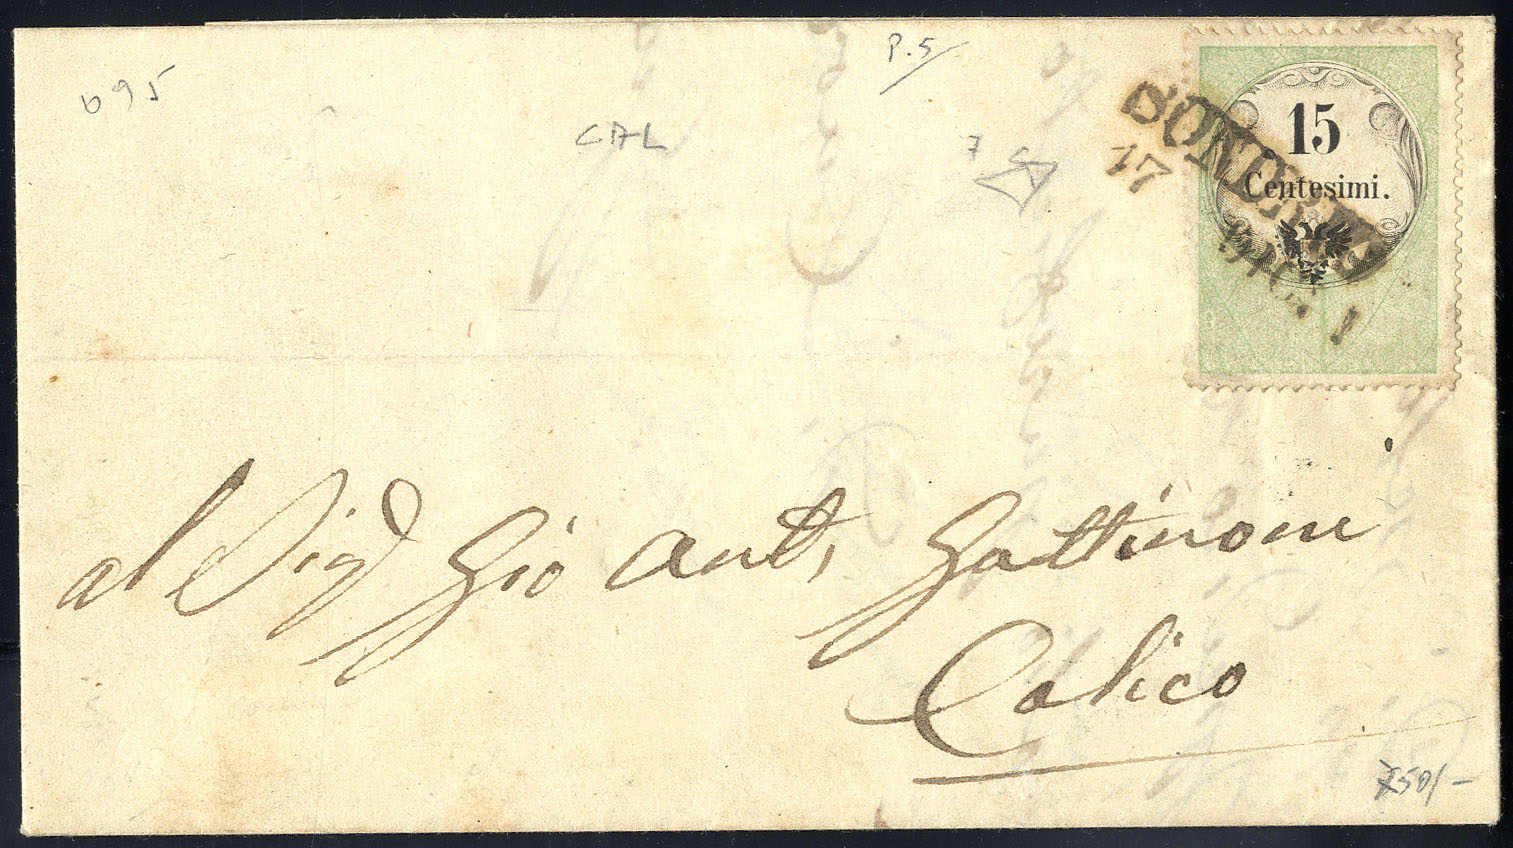 P.5
695
CAL
7
15
Centesimi.
SONDRIO
17
MAG.
al Sig.r Gio Ant. Gattinoni
Colico
750/-